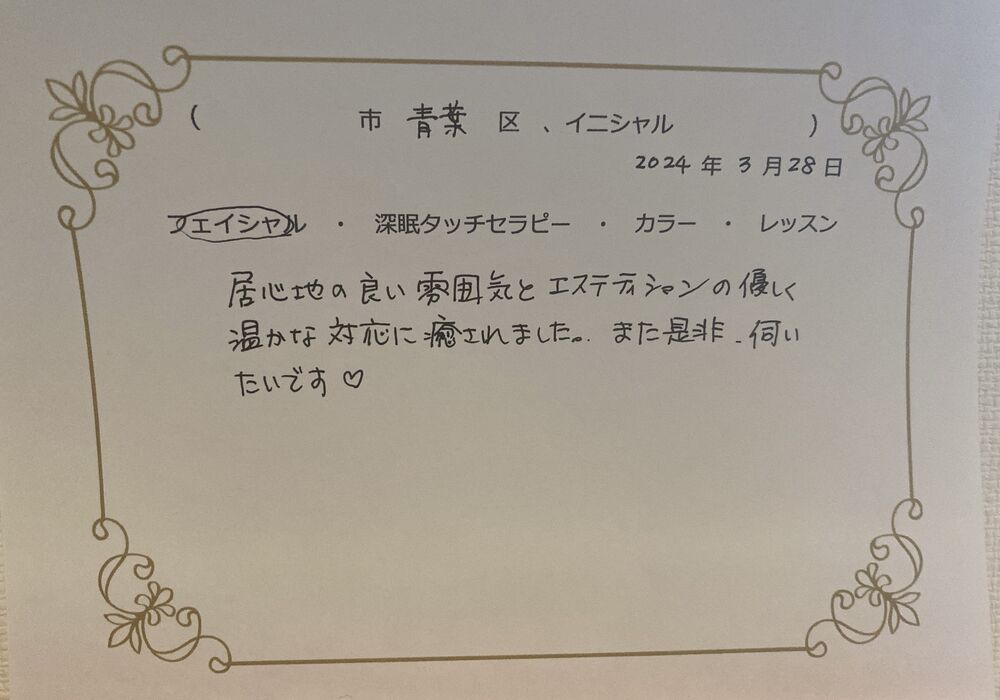 ( 市 青葉 区 、イニシャル )
2024 年 3 月 28 日
フェイシャル ・ 深眠タッチセラピー ・ カラー ・ レッスン
居心地の良い雰囲気とエステティシャンの優しく
温かな対応に癒されました。また是非、伺い
たいです♡